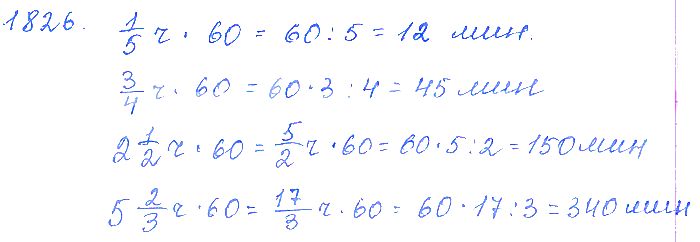 1826. 1/5 ч · 60 = 60 : 5 = 12 мин.
3/4 ч · 60 = 60 · 3 : 4 = 45 мин
2 1/2 ч · 60 = 5/2 ч · 60 = 60 · 5 : 2 = 150 мин
5 2/3 ч · 60 = 17/3 ч · 60 = 60 · 17 : 3 = 340 мин